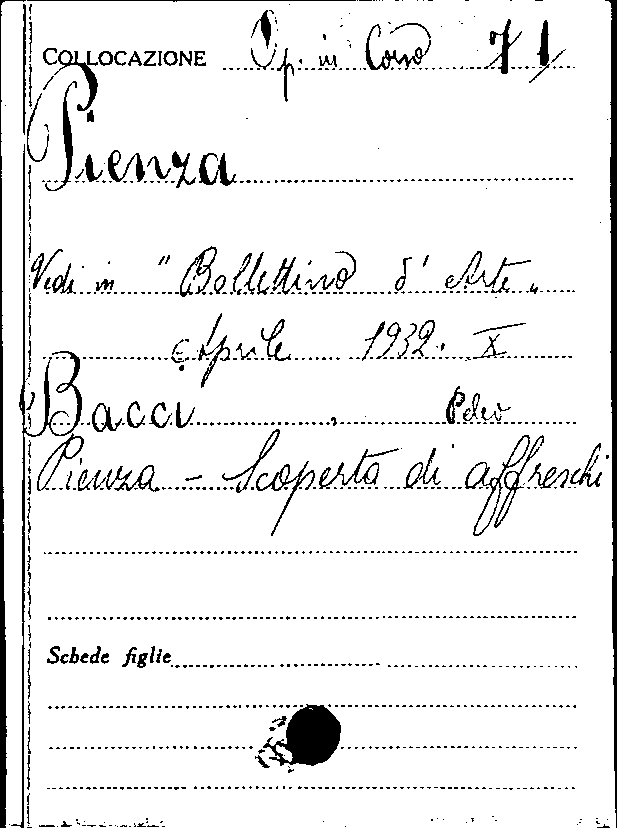 COLLOCAZIONE Op. in Corso 71
Pienza
Vedi in "Bollettino d'Arte"
Aprile 1932. X
Bacci, Peleo
Pienza - Scoperta di affreschi
Schede figlie